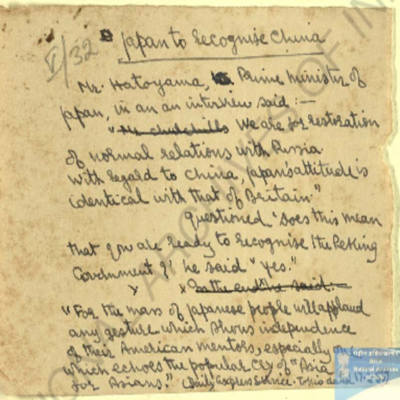 Japan to Recognise China
V/32
Mr. Hatoyama, Prime Minister of
Japan, in an an interview said :—
"We are for restoration
of normal relations with Russia
With regard to China Japan's attitude is
identical with that of Britain"
Questioned "Does this mean
that you are ready to recognise the Peking
Government?' he said "Yes."
In the end he said:-
"For the mass of Japanese people will applaud
any gesture which shows independence
of their American mentors, especially one
which echoes the popular cry of "Asia
for Asians." (Daily Express Service - Tokio dated